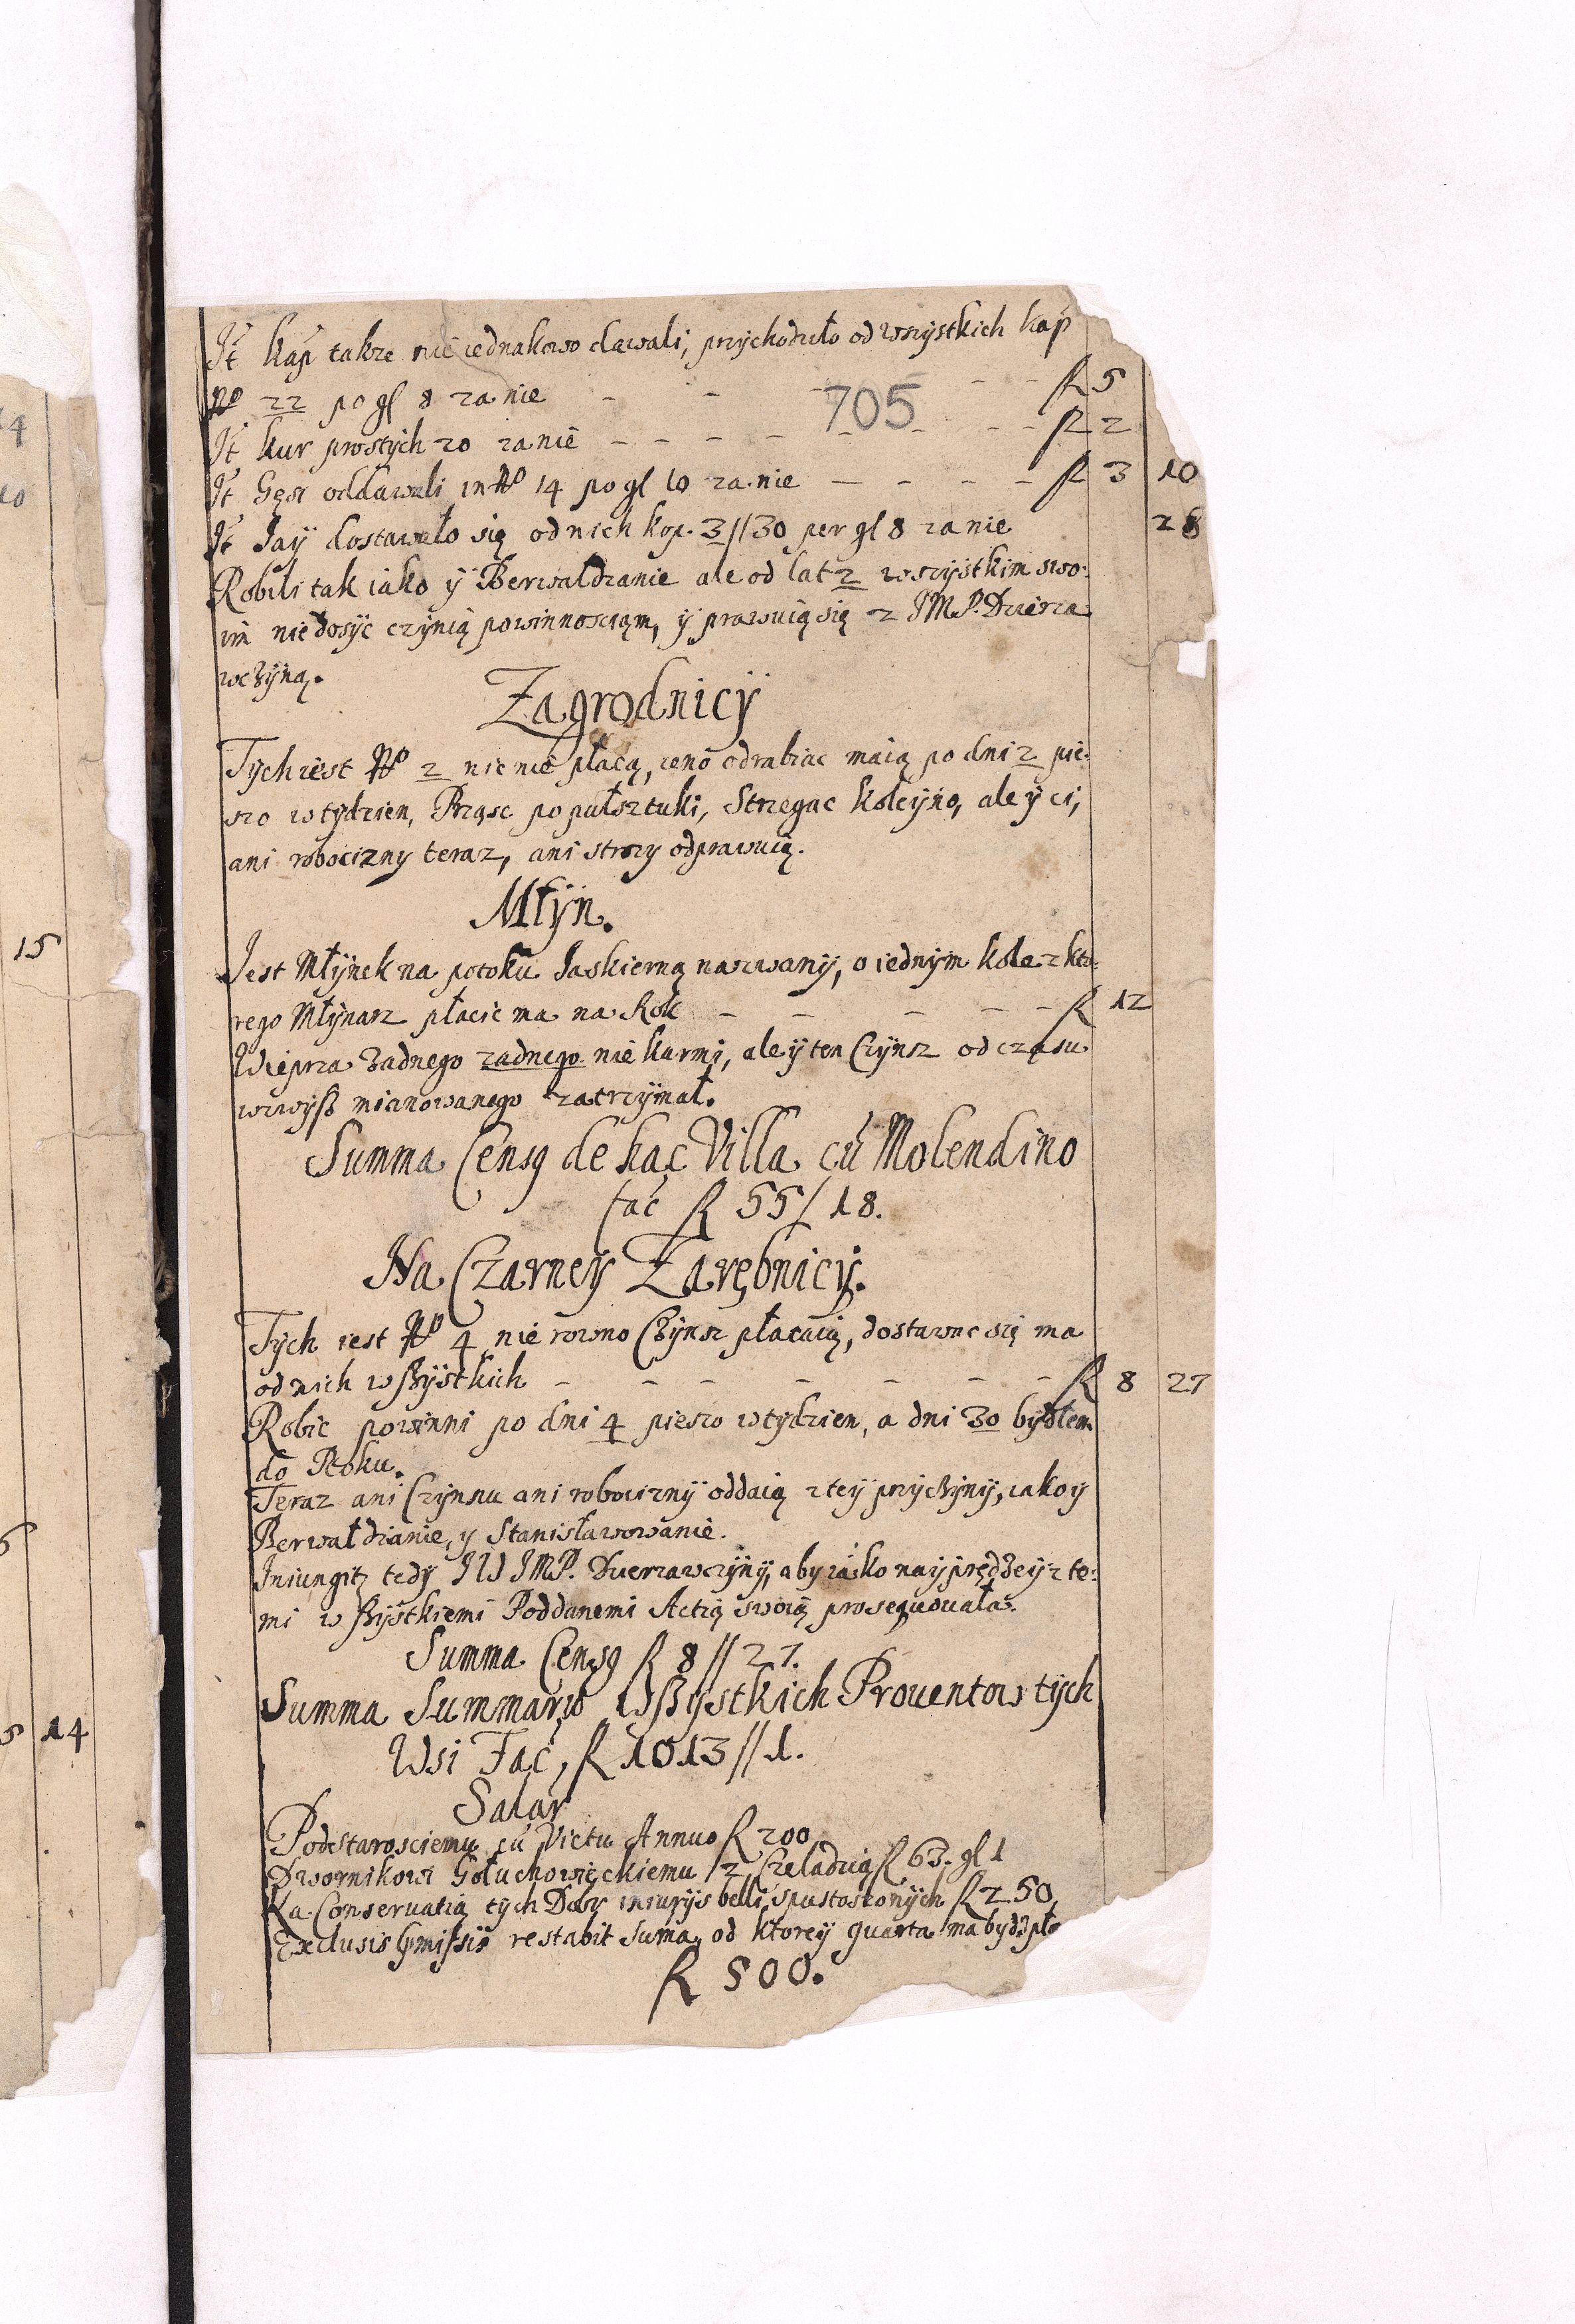 It kap takze nie iednakowo dawali, przychodziło od wszystkich kap
No 22 po gl 8 za nie - - - - R 5
705
It kur prostych 20 za nie - - - - - - - R 2
It Gęsi oddawali in No 14 po gl 10 za nie - - - - R 3 10
It Jay dostawało się od nich kop. 3//30 per gl 8 za nie 28
Robili tak iako ÿ Berwaldzanie ale od lat 2 wszystkim swo:
im nie dosÿc czÿnią powinnosciąm, ÿ prawuią się z JMP. Dzierza
wczÿną.
Zagrodnicÿ
Tÿch iest No 2 nic nie płacą, ieno odrabiac maią po dni 2 pie:
szo w tÿdzien, Prząsc po pułsztuki, Strzegac koleÿno, ale ÿ ci,
ani robocizny teraz, ani strozy odprawuią.
Młÿn.
Jest Młÿnek na potoku Jaskierną nazwanÿ, o iednÿm kole z kto:
rego Młÿnarz płacic ma na Rok - - - - - R 12
Wieprza zadnego zadnego nie karmi, ale ÿ ten Czÿnsz od czasu
wzwÿß mianowanego zatrzÿmał.
Summa Censq de hac Villa cu Molendino
fac R 55/18.
Na Czarneÿ Zarębnicÿ.
Tÿch iest No 4 nie rowno Czÿnsz płacaią, dostawac się ma
od nich wßÿstkich - - - - - - - R 8 27
Robic powinni po dni 4 pieszo w tÿdzien, a dni 30 bydłem
do Roku.
Teraz ani Czÿnszu ani robociznÿ oddaią z teÿ przÿczÿnÿ, iako ÿ
Berwałdzianie, y Stanisławowanie.
Iniungitz tedÿ JW JMP. Dzierzawczÿnÿ, aby iako naÿprędzeÿ z te:
mi wßÿstkiemi Poddanemi Actią swoią prosequowała.
Summa Censq R 8//27.
Summa Summarw Wßÿstkich Prouentow tÿch
Wsi Fac, R 1013//1.
Salar
Podstarosciemu cu Victu Annuo R 200
Dwornikowi Gołuchowięckiemu z Czeladzią R 63. gl 1
Na Conservatią tÿch Dobr iniurÿs belli spustoszonÿch R 250
Exclusis restabit suma, od ktoreÿ quarta ma bÿdz pło
R 500.
15
14